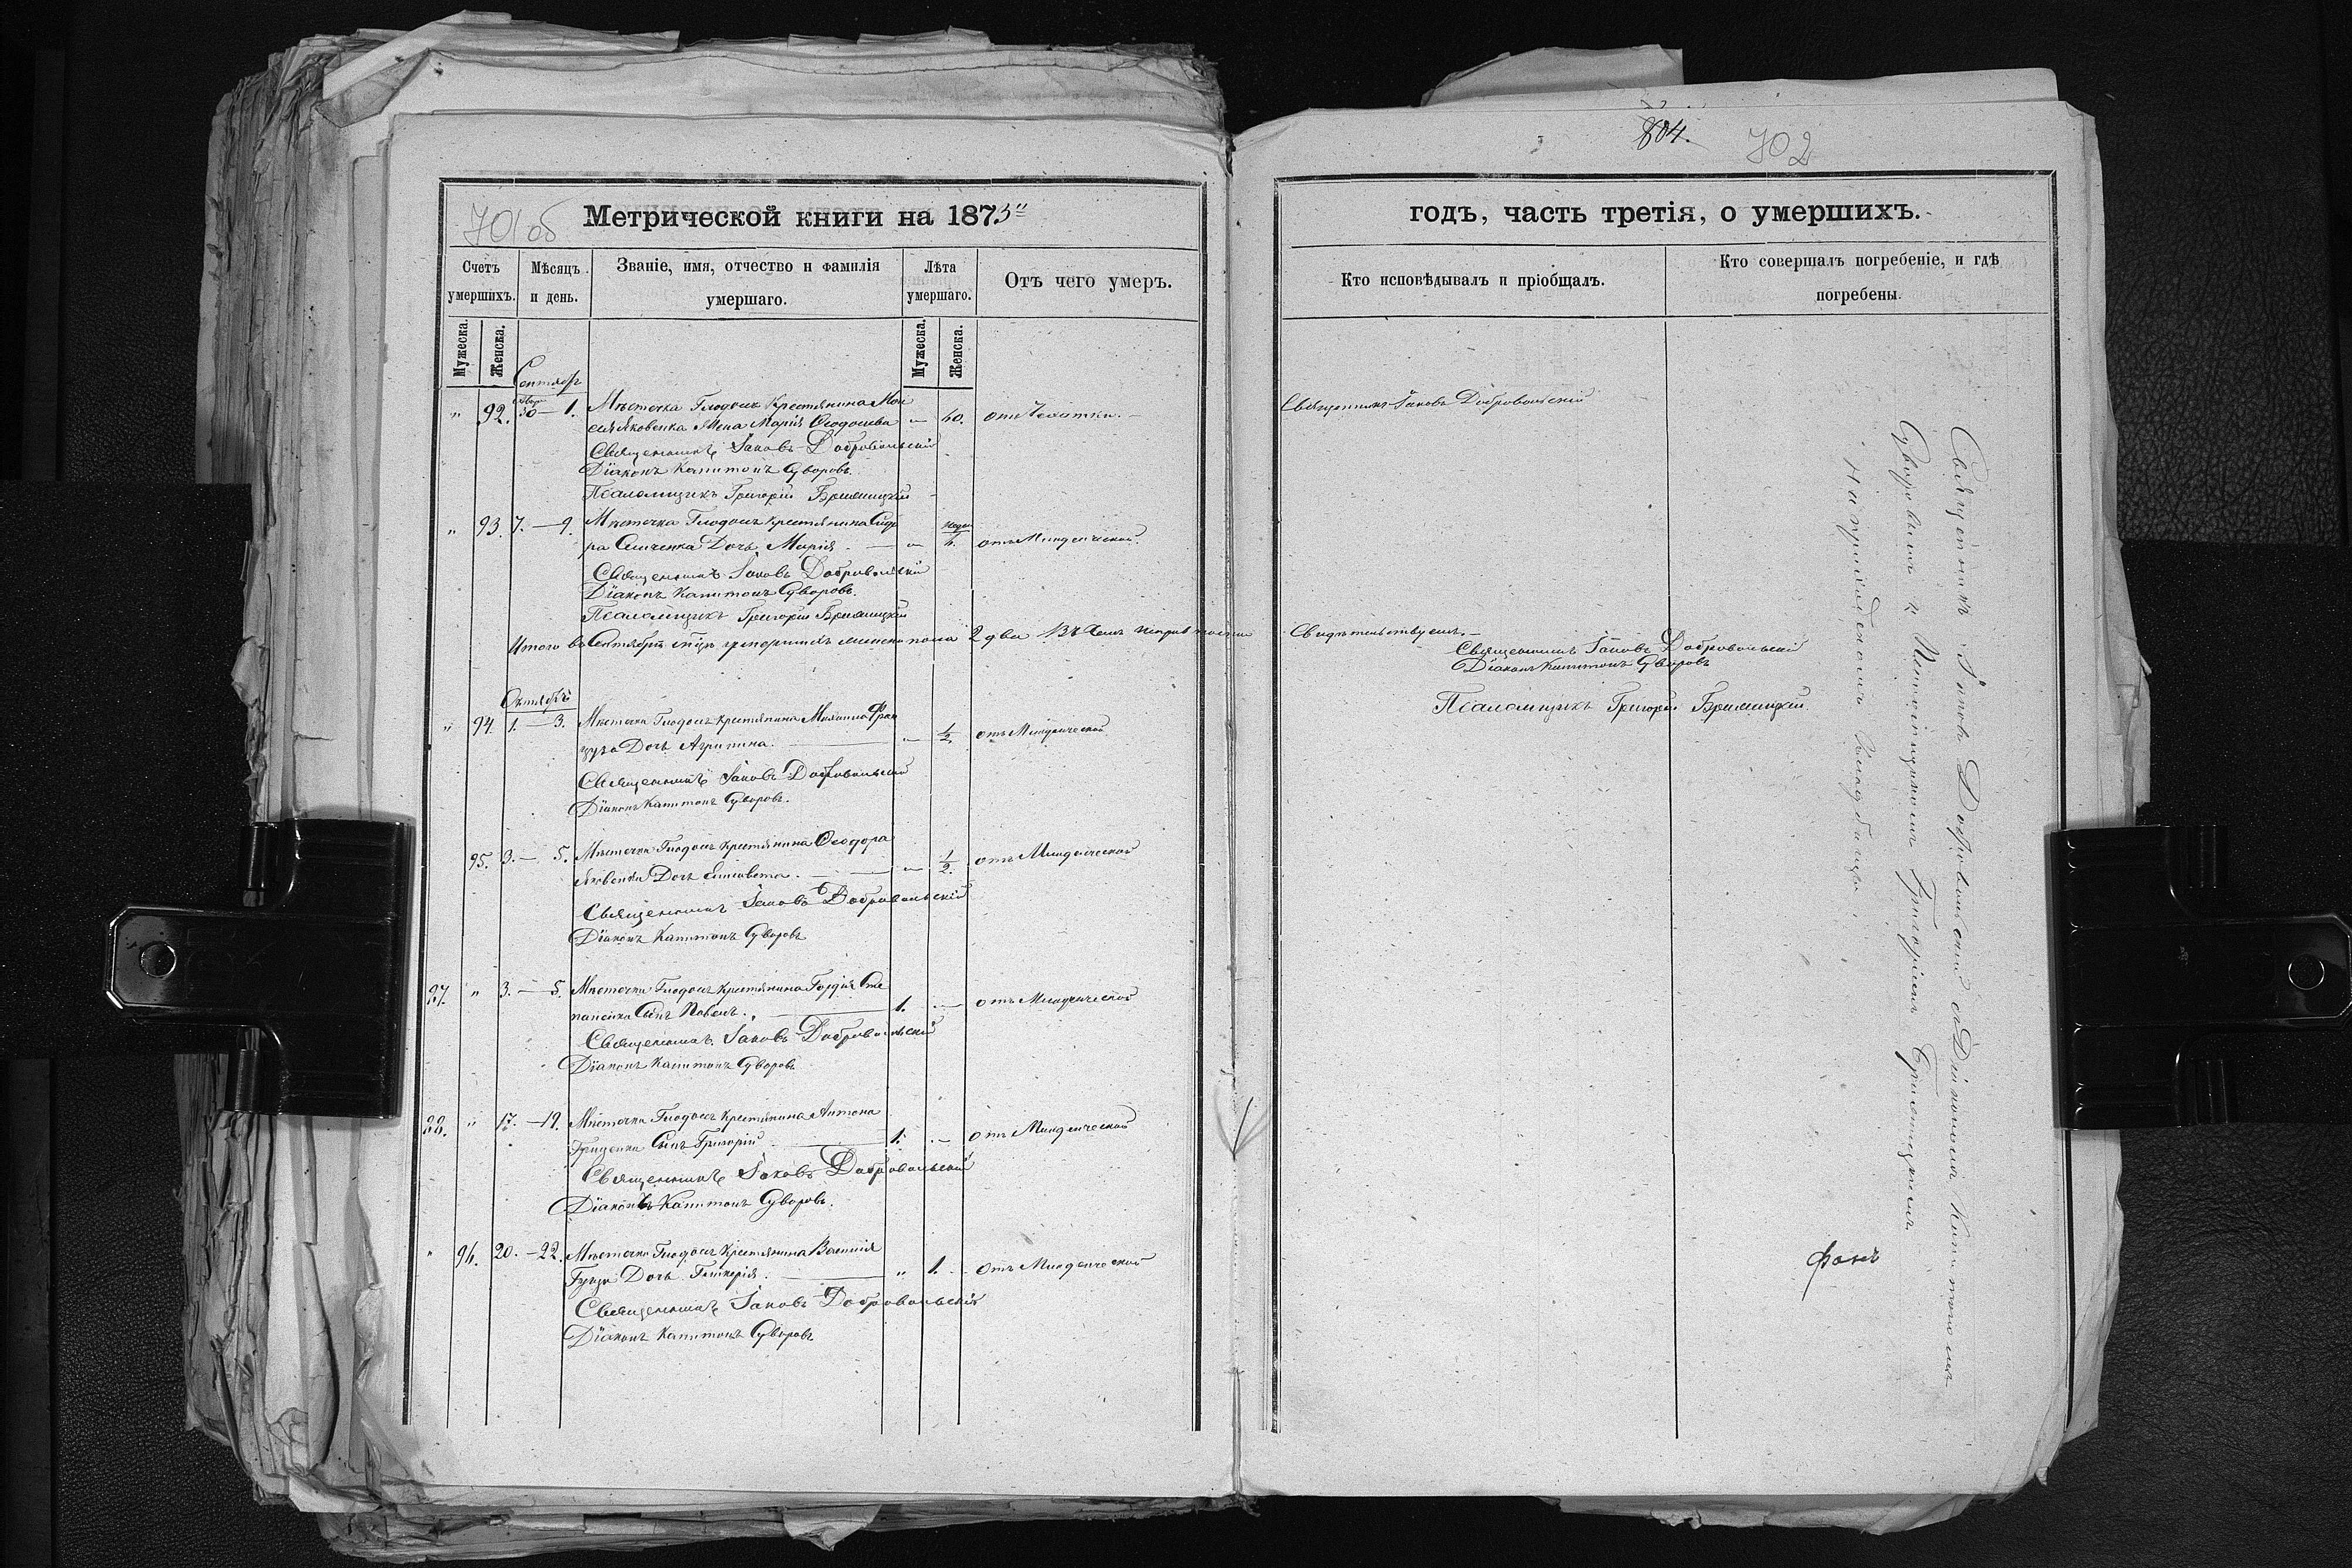 701об
Метрической книги на 1873"
Счетъ умершихъ.
Мѣсяцъ и день.
Званіе, имя, отчество и фамилія умершаго.
Лѣта умершаго.
Отъ чего умеръ.
Мужеска.
Женска.
Мужеска.
Женска.
Сентябрь
" 92. 30 — 1. Мѣстечка Глодосъ Крестьянина Мои
сея Яковенка Жена Марія Ѳеодосіева — 40. отъ Чахотки. —
Священникъ Іаковъ Добровольскій
Діаконъ Капитонъ Суворовъ.
Псаломщикъ Григорій
" 93. 7. — 9. Мѣстечка Глодосъ крестьянина Сидо
ра Дочь Марія — отъ Младенческой.
Священникъ Іаковъ Добровольскій
Діаконъ Капитонъ Суворовъ.
Псаломщикъ Григорій
Итого въ Сентябрѣ умершихъ женска пола 2 два Въ чемъ
Октябрь
" 94. 1. — 3. Мѣстечка Глодосъ крестьянина Михаила Фран
цуза Дочь Агрипина. — 1/2. отъ Младенческой
Священникъ Іаковъ Добровольскій
Діаконъ Капитонъ Суворовъ.
95. 3. — 5. Мѣстечка Глодосъ крестьянина Ѳеодора
Яковенка Дочь Елисавета. — 1/2. отъ Младенческой
Священникъ Іаковъ Добровольскій
Діаконъ Капитонъ Суворовъ
" 3. — 5. Мѣстечка Глодосъ крестьянина Гордія Сте
паненка Сынъ Павелъ. 1. — отъ Младенческой
Священникъ Іаковъ Добровольскій
Діаконъ Капитонъ Суворовъ
" 17. — 19. Мѣстечка Глодосъ крестьянина Антона
Гриценка Сынъ Григорій 1. — отъ Младенческой
Священникъ Іаковъ Добровольскій
Діаконъ Капитонъ Суворовъ.
" 96. 20. — 22. Мѣстечка Глодосъ крестьянина Василія
Дочь Гликерія. " 1. — отъ Младенческой
Священникъ Іаковъ Добровольскій
Діаконъ Капитонъ Суворовъ
804.
702
годъ, часть третія, о умершихъ.
Кто исповѣдывалъ и пріобщалъ.
Кто совершалъ погребеніе, и гдѣ погребены.
Священникъ Іаковъ Добровольскій
Свидѣтельствуемъ. —
Священникъ Іаковъ Добровольскій
Діаконъ Капитонъ Суворовъ
Псаломщикъ Григорій
Священникъ Іаковъ Добровольскій съ Діакономъ Капитономъ
Суворовымъ и Псаломщикомъ Григоріемъ
на приходскомъ кладбищѣ.